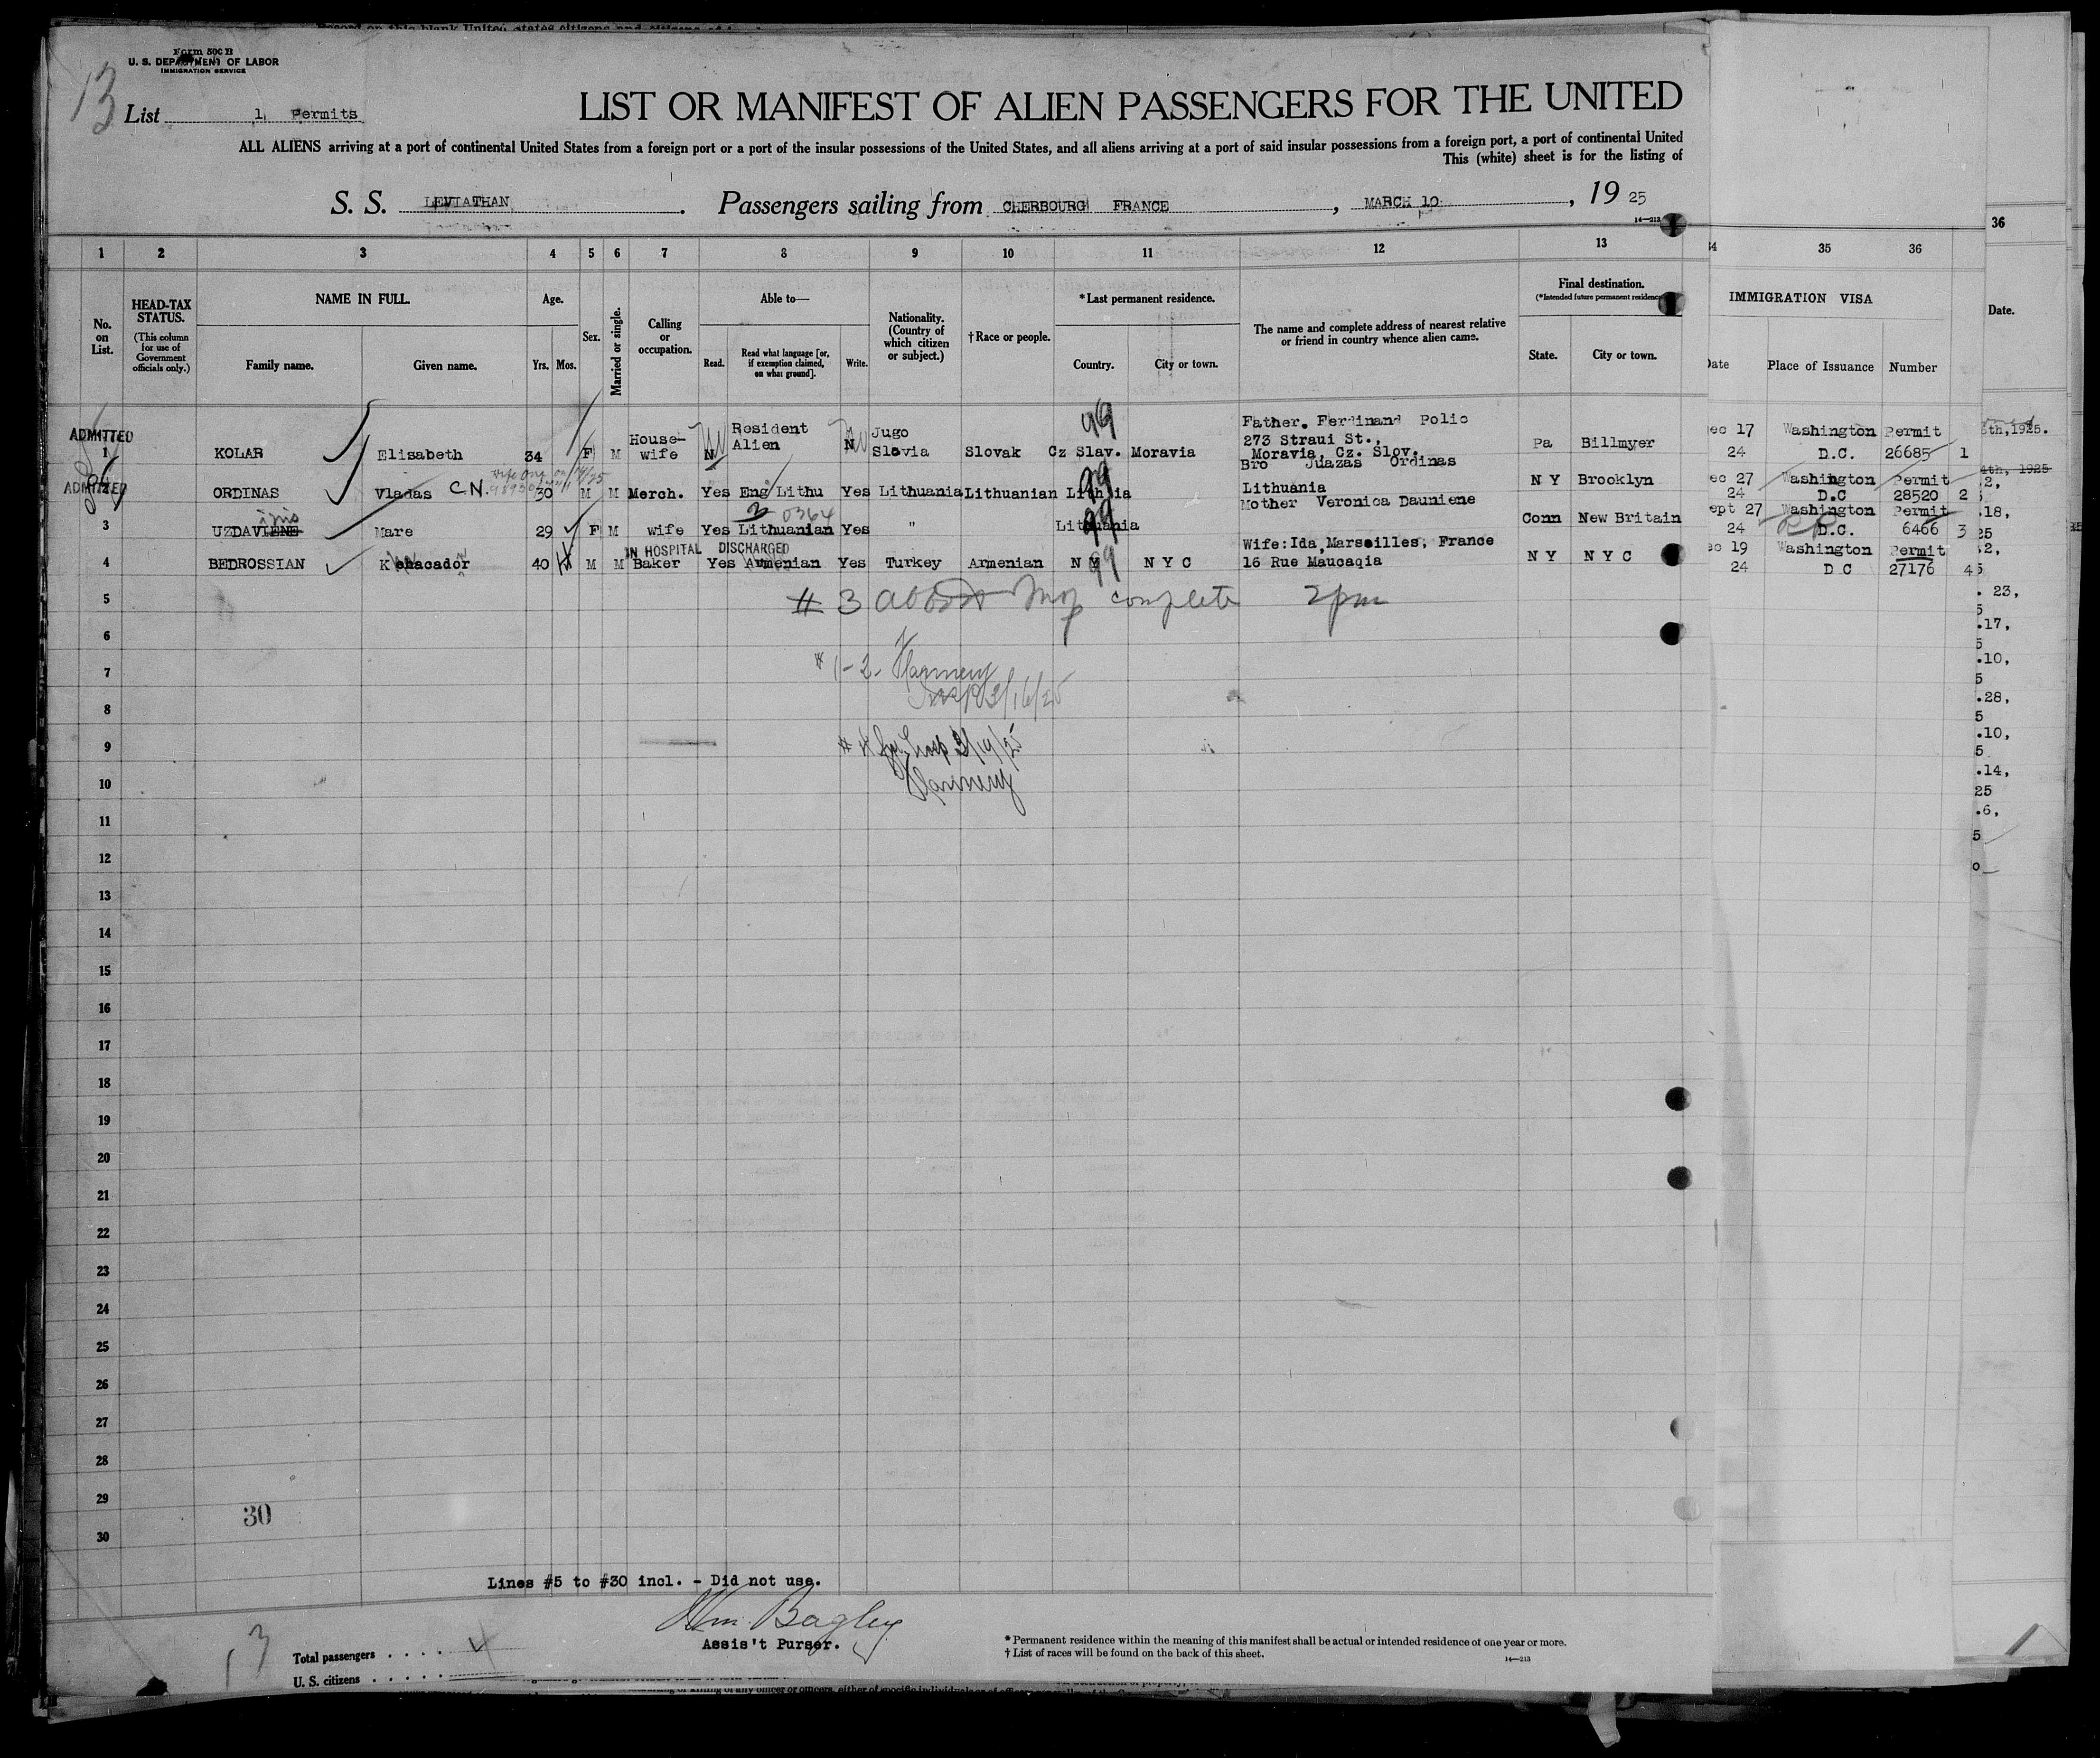 Form 500 B
U. S. DEPARTMENT OF LABOR
IMMIGRATION SERVICE
13
List 1 Permits
LIST OR MANIFEST OF ALIEN PASSENGERS FOR THE UNITED
ALL ALIENS arriving at a port of continental United States from a foreign port or a port of the insular possessions of the United States, and all aliens arriving at a port of said insular possessions from a foreign port, a port of continental United
This (white) sheet is for the listing of
S. S. LEVIATHAN. Passengers sailing from CHERBOURG FRANCE, MARCH 10, 19 25
14—213
1 2 3 4 5 6 7 8 9 10 11 12 13 34 35 36 36
No. on List.
HEAD-TAX STATUS.
(This column for use of Government officials only.)
NAME IN FULL.
Family name. Given name.
Age.
Yrs. Mos.
Sex.
Married or single.
Calling or occupation.
Able to—
Read. Read what language [or, if exemption claimed, on what ground]. Write.
Nationality. (Country of which citizen or subject.)
†Race or people.
*Last permanent residence.
Country. City or town.
The name and complete address of nearest relative or friend in country whence alien came.
Final destination.
(*Intended future permanent residence
State. City or town.
IMMIGRATION VISA
Date Place of Issuance Number
Date.
ADMITTED
1 KOLAR Elisabeth 34 F M House-wife N Resident Alien N Jugo Slovia Slovak Cz Slav. Moravia Father. Ferdinand Polic 273 Straui St., Moravia, Cz. Slov. Pa Billmyer ec 17 24 Washington D.C. Permit 26685 1
ADMITTED
2 ORDINAS Vladas C.N. 30 M M Merch. Yes Eng Lithu Yes Lithuania Lithuanian Bro Juazas Ordinas Lithuania N Y Brooklyn ec 27 24 Washington D.C Permit 28520 2
3 UZDAVIENE Mare 29 F M wife Yes Lithuanian Yes " Lithuania Mother Veronica Dauniene Conn New Britain ept 27 24 Washington D.C. Permit 6466 3
IN HOSPITAL DISCHARGED
4 BEDROSSIAN 40 M M Baker Yes Armenian Yes Turkey Armenian N Y N Y C Wife: Ida, Marseilles, France 16 Rue Maucaqia N Y N Y C ec 19 24 Washington D C Permit 27176 4
99
99
99
99
5
# 3 complete 2pm
6
7
# 1-2.
3/16/25
8
9
10
11
12
13
14
15
16
17
18
19
20
21
22
23
24
25
26
27
28
29
30
30
Lines #5 to #30 incl. - Did not use.
Wm Bagley
Assis't Purser.
13
Total passengers . . . .
U. S. citizens . . . . .
* Permanent residence within the meaning of this manifest shall be actual or intended residence of one year or more.
† List of races will be found on the back of this sheet.
14—213